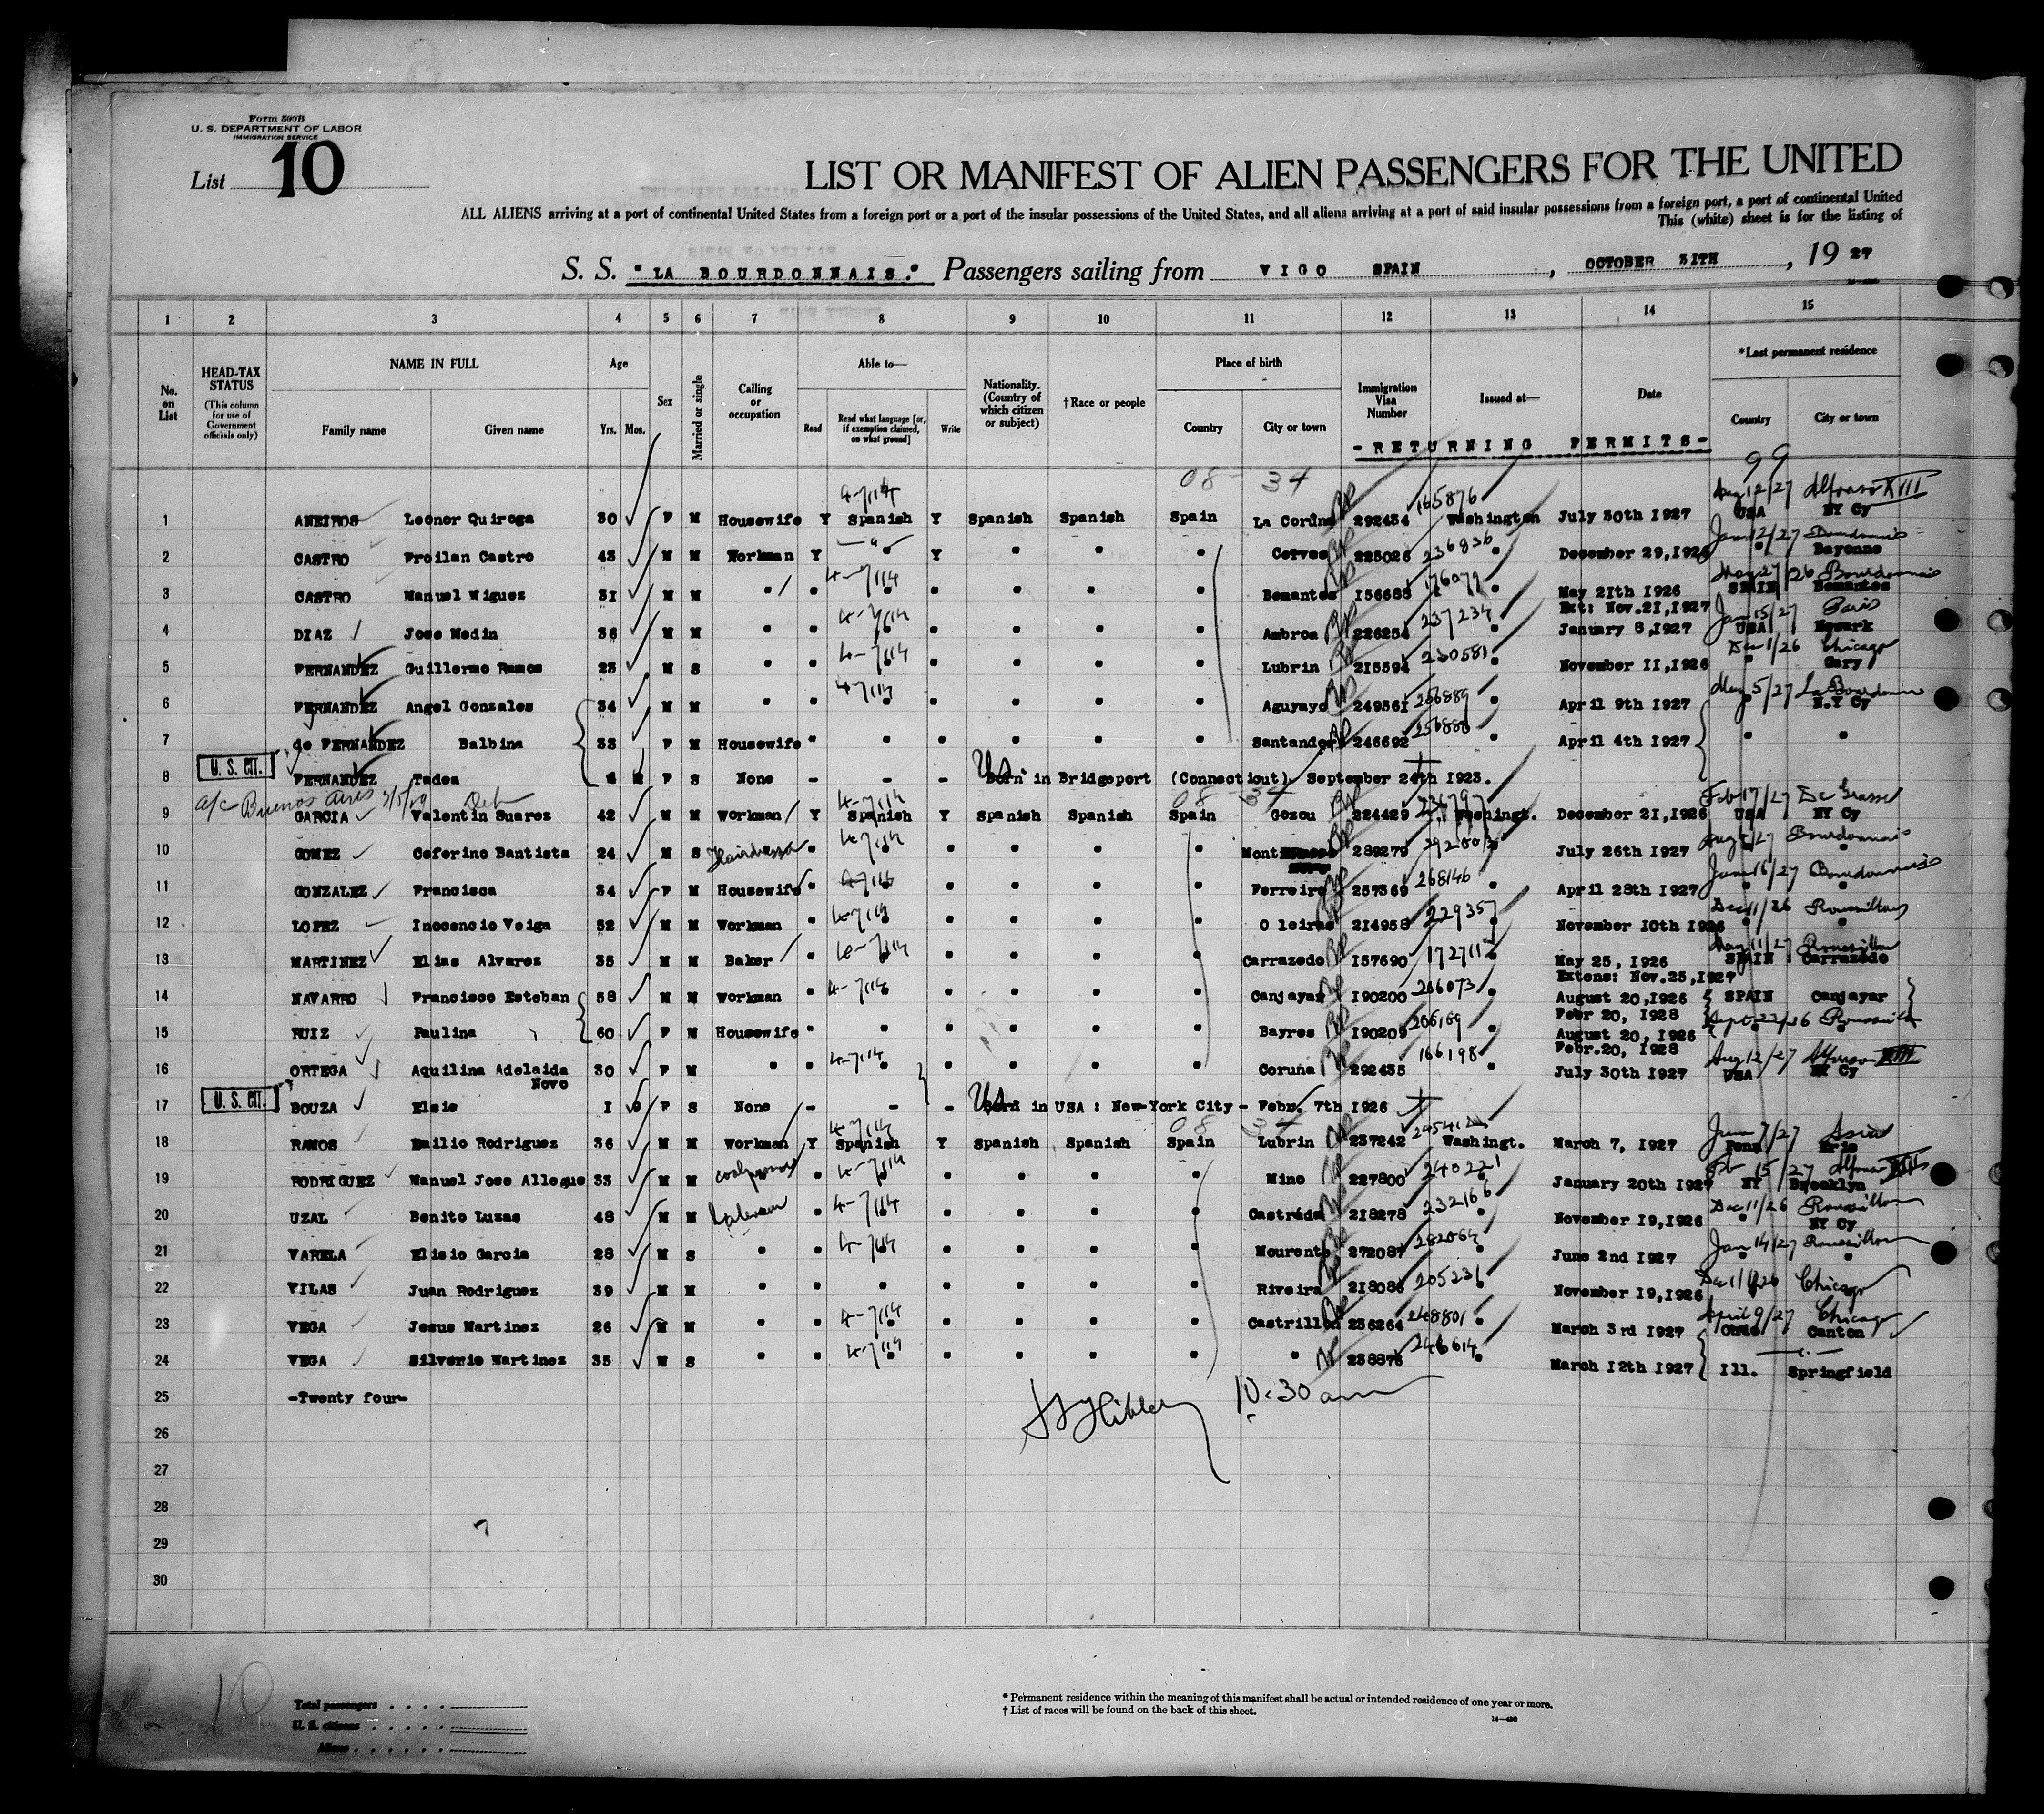 Form 500B
U. S. DEPARTMENT OF LABOR
IMMIGRATION SERVICE
List 10
LIST OR MANIFEST OF ALIEN PASSENGERS FOR THE UNITED
ALL ALIENS arriving at a port of continental United States from a foreign port or a port of the insular possessions of the United States, and all aliens arriving at a port of said insular possessions from a foreign port, a port of continental United
This (white) sheet is for the listing of
S. S. "LA BOURDONNAIS." Passengers sailing from VIGO SPAIN , OCTOBER 31TH , 19 27
1 2 3 4 5 6 7 8 9 10 11 12 13 14 15
No. on List
HEAD-TAX STATUS (This column for use of Government officials only)
NAME IN FULL Family name Given name
Age Yrs. Mos.
Sex
Married or single
Calling or occupation
Able to— Read Read what language [or, if exemption claimed, on what ground] Write
Nationality. (Country of which citizen or subject)
†Race or people
Place of birth Country City or town
Immigration Visa Number
Issued at—
Date
*Last permanent residence Country City or town
-RETURNING PERMITS-
08- 34 99
4-7/14 165876 Aug 12/27 Alfonso XIII
1 ANEIROS Leonor Quiroga 30 F M Housewife Y Spanish Y Spanish Spanish Spain La Coruna 292434 Washington July 30th 1927 USA NY Cy
236836 Jan 12/27
2 CASTRO Froilan Castro 43 M M Workman Y " Y " " " Cervas 225026 " December 29,1926 " Bayonne
4-7/14 May 27/26 Bourdonnais
3 CASTRO Manuel Miguez 31 M M " " " " " " " Bemantes 156688 " May 21th 1926 SPAIN Bemantes
Ext: Nov.21,1927
4-7/14 237234 Jan 15/27 Paris
4 DIAZ Jose Medin 36 M M " " " " " " " Ambroa 226254 " January 8,1927 USA Newark
4-7/14 230581 Dec 1/26 Chicago
5 FERNANDEZ Guillermo Ramos 23 M S " " " " " " " Lubrin 215594 " November 11,1926 " Gary
4-7/14 256889 May 5/27 La Bourdonnais
6 FERNANDEZ Angel Gonzales 34 M M " " " " " " " Aguyayo 249561 " April 9th 1927 " N.Y Cy
256888
7 de FERNANDEZ Balbina 33 F M Housewife " " " " " " Santander 246692 " April 4th 1927 " "
U. S. CIT.
8 FERNANDEZ Tadea F S None - - - US Born in Bridgeport (Connecticut) September 24th 1923.
a/c Buenos Aires Deb 4-7/14 08 34 236797 Feb 17/27 De Grasse
9 GARCIA Valentin Suarez 42 M M Workman Y Spanish Y Spanish Spanish Spain Gozou 224429 Washingt. December 21,1926 USA NY Cy
4-7/14 Bourdonnais
10 GOMEZ Ceferino Bantista 24 M S Hairdresser " " " " " " Mont 289279 " July 26th 1927 " "
268146 June 16/27 Bourdonnais
11 GONZALEZ Francisca 34 F M Housewife " " " " " " Ferreira 257369 " April 28th 1927 " "
4-7/14 229357 Dec 11/26 Roussillon
12 LOPEZ Inocencio Veiga 52 M M Workman " " " " " " Oleiros 214958 " November 10th 1926 " "
4-7/14 172711 May 11/27 Roussillon
13 MARTINEZ Elias Alvarez 35 M M Baker " " " " " " Carrazedo 157690 " May 25, 1926 SPAIN Carrazedo
Extens: Nov.25,1927
4-7/14 206073
14 NAVARRO Francisco Esteban 58 M M Workman " " " " " " Canjayar 190200 " August 20,1926 SPAIN Canjayar
Febr 20, 1928
206169 Sept 22/26 Roussillon
15 RUIZ Paulina 60 F M Housewife " " " " " " Bayres 190209 " August 20, 1926
Febr.20, 1928
4-7/14 166198 Aug 12/27 Alfonso XIII
16 ORTEGA Aquilina Adelaida Novo 30 F M " " " " " " " Coruna 292435 " July 30th 1927 USA NY Cy
U. S. CIT.
17 BOUZA Elsie 1 F S None - - - US Born in USA : New-York City - Febr. 7th 1926
4-7/14 08 34 Jun 7/27 Asia
18 RAMOS Emilio Rodriguez 36 M M Workman Y Spanish Y Spanish Spanish Spain Lubrin 237242 Washingt. March 7, 1927 Penn Erie
4-7/14 240221 Feb 15/27 Alfonso XIII
19 RODRIGUEZ Manuel Jose Allegue 33 M M " " " " " " Mino 227800 " January 20th 1927 NY Brooklyn
4-7/14 232166 Dec 11/26 Roussillon
20 UZAL Benito Luzas 48 M M " " " " " " 218278 " November 19,1926 " NY Cy
4-7/14 282064 Jan 14/27 Roussillon
21 VARELA Elisio Garcia 28 M S " " " " " " " Mourente 272087 " June 2nd 1927 " "
205236 Chicago
22 VILAS Juan Rodriguez 39 M M " " " " " " " Riveira 218086 " November 19,1926
4-7/14 248801 April 9/27 Chicago
23 VEGA Jesus Martinez 26 M M " " " " " " " Castrillon 236264 " March 3rd 1927 Ohio Canton
4-7/14 246614
24 VEGA Silverio Martinez 35 M S " " " " " " " " 238876 " March 12th 1927 Ill. Springfield
25 -Twenty four-
10.30 am
26
27
28
29
30
10
Total passengers
U. S. citizens
Aliens
* Permanent residence within the meaning of this manifest shall be actual or intended residence of one year or more.
† List of races will be found on the back of this sheet.
14—430